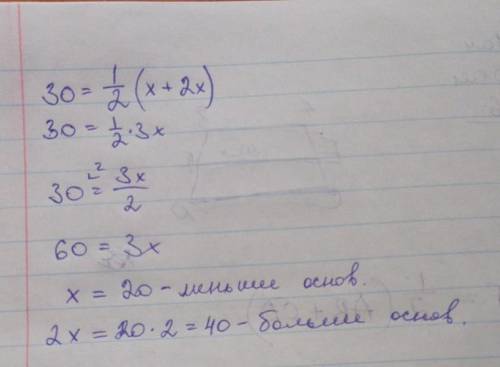 30 = 1/2 (x + 2x)
30 = 1/2 · 3x
30 = 3x/2
60 = 3x
x = 20 - меньше основ.
2x = 20 · 2 = 40 - больше основ.